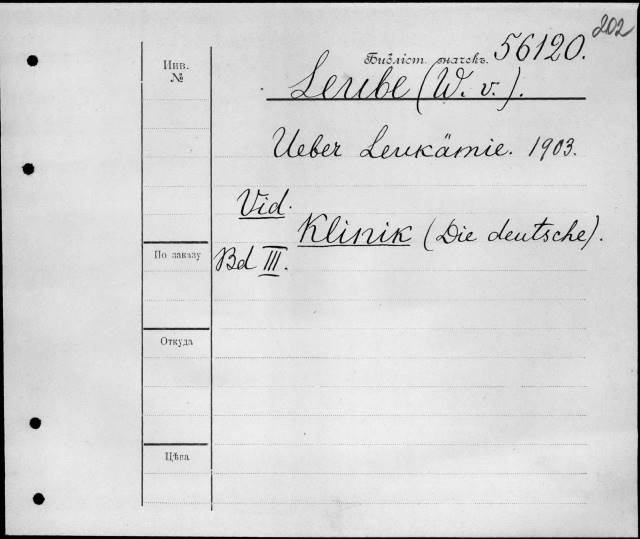 202
Библіот. значекъ. 56120.
Инв.
№
Leube (W. v.).
Ueber Leukämie. 1903.
Vid.
Klinik (Die deutsche).
По заказу
Bd III.
Откуда
Цѣна